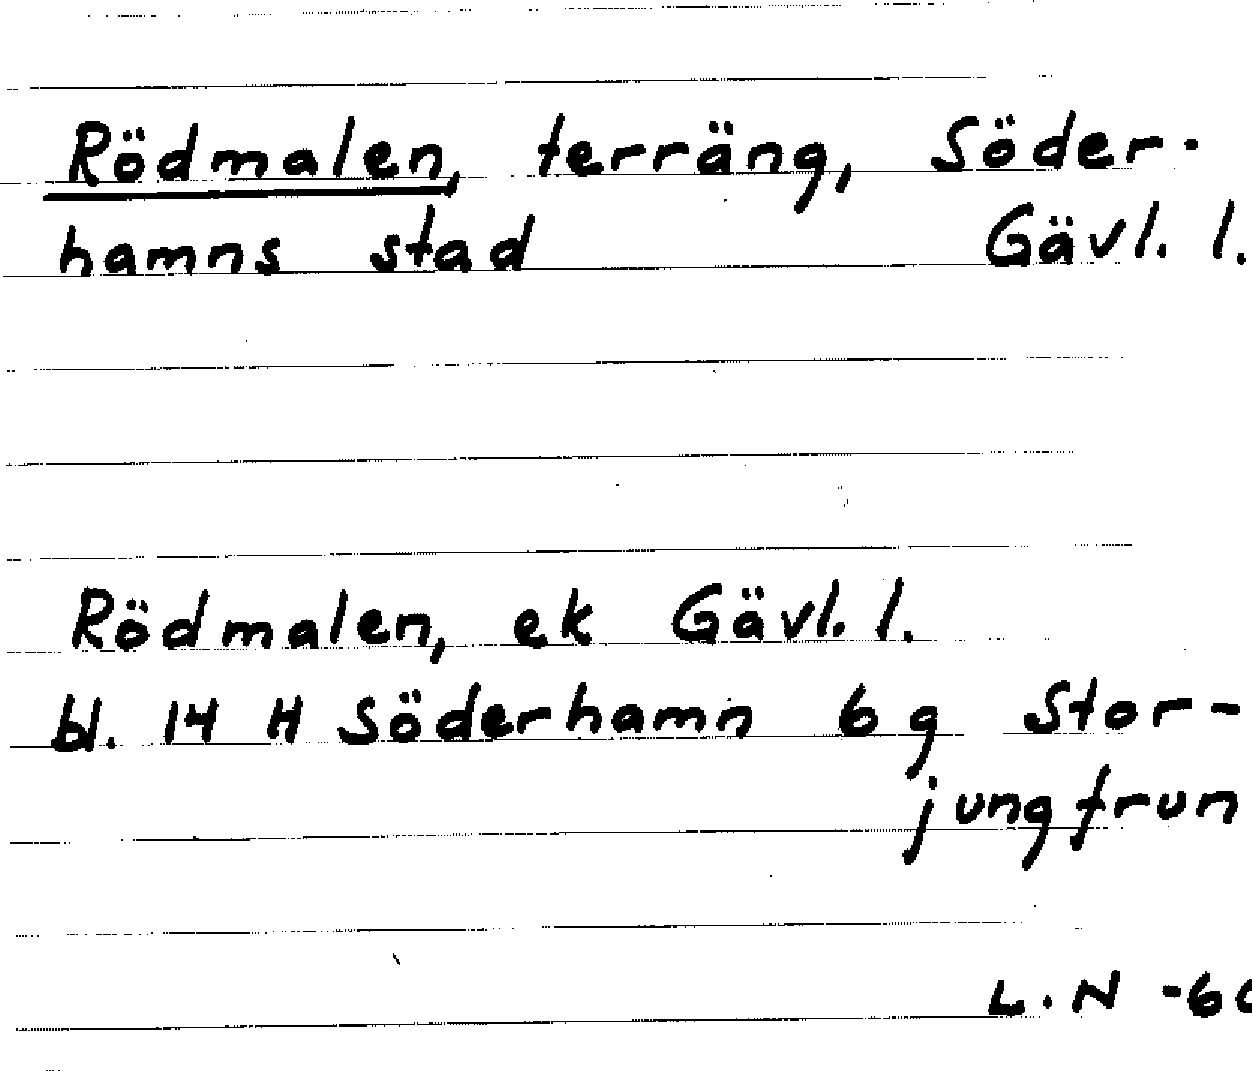 Rödmalen, terräng, Söder-
hamns stad Gävl. l.
Rödmalen, ek Gävl. l.
bl. 14 H Söderhamn 6 g Stor-
jungfrun
L.N